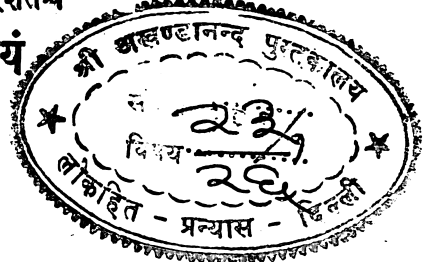 यं
श्री अखण्डानन्द पुस्तकालय
२३/
विषय
२६
लोकहित - प्रन्यास - दिल्ली